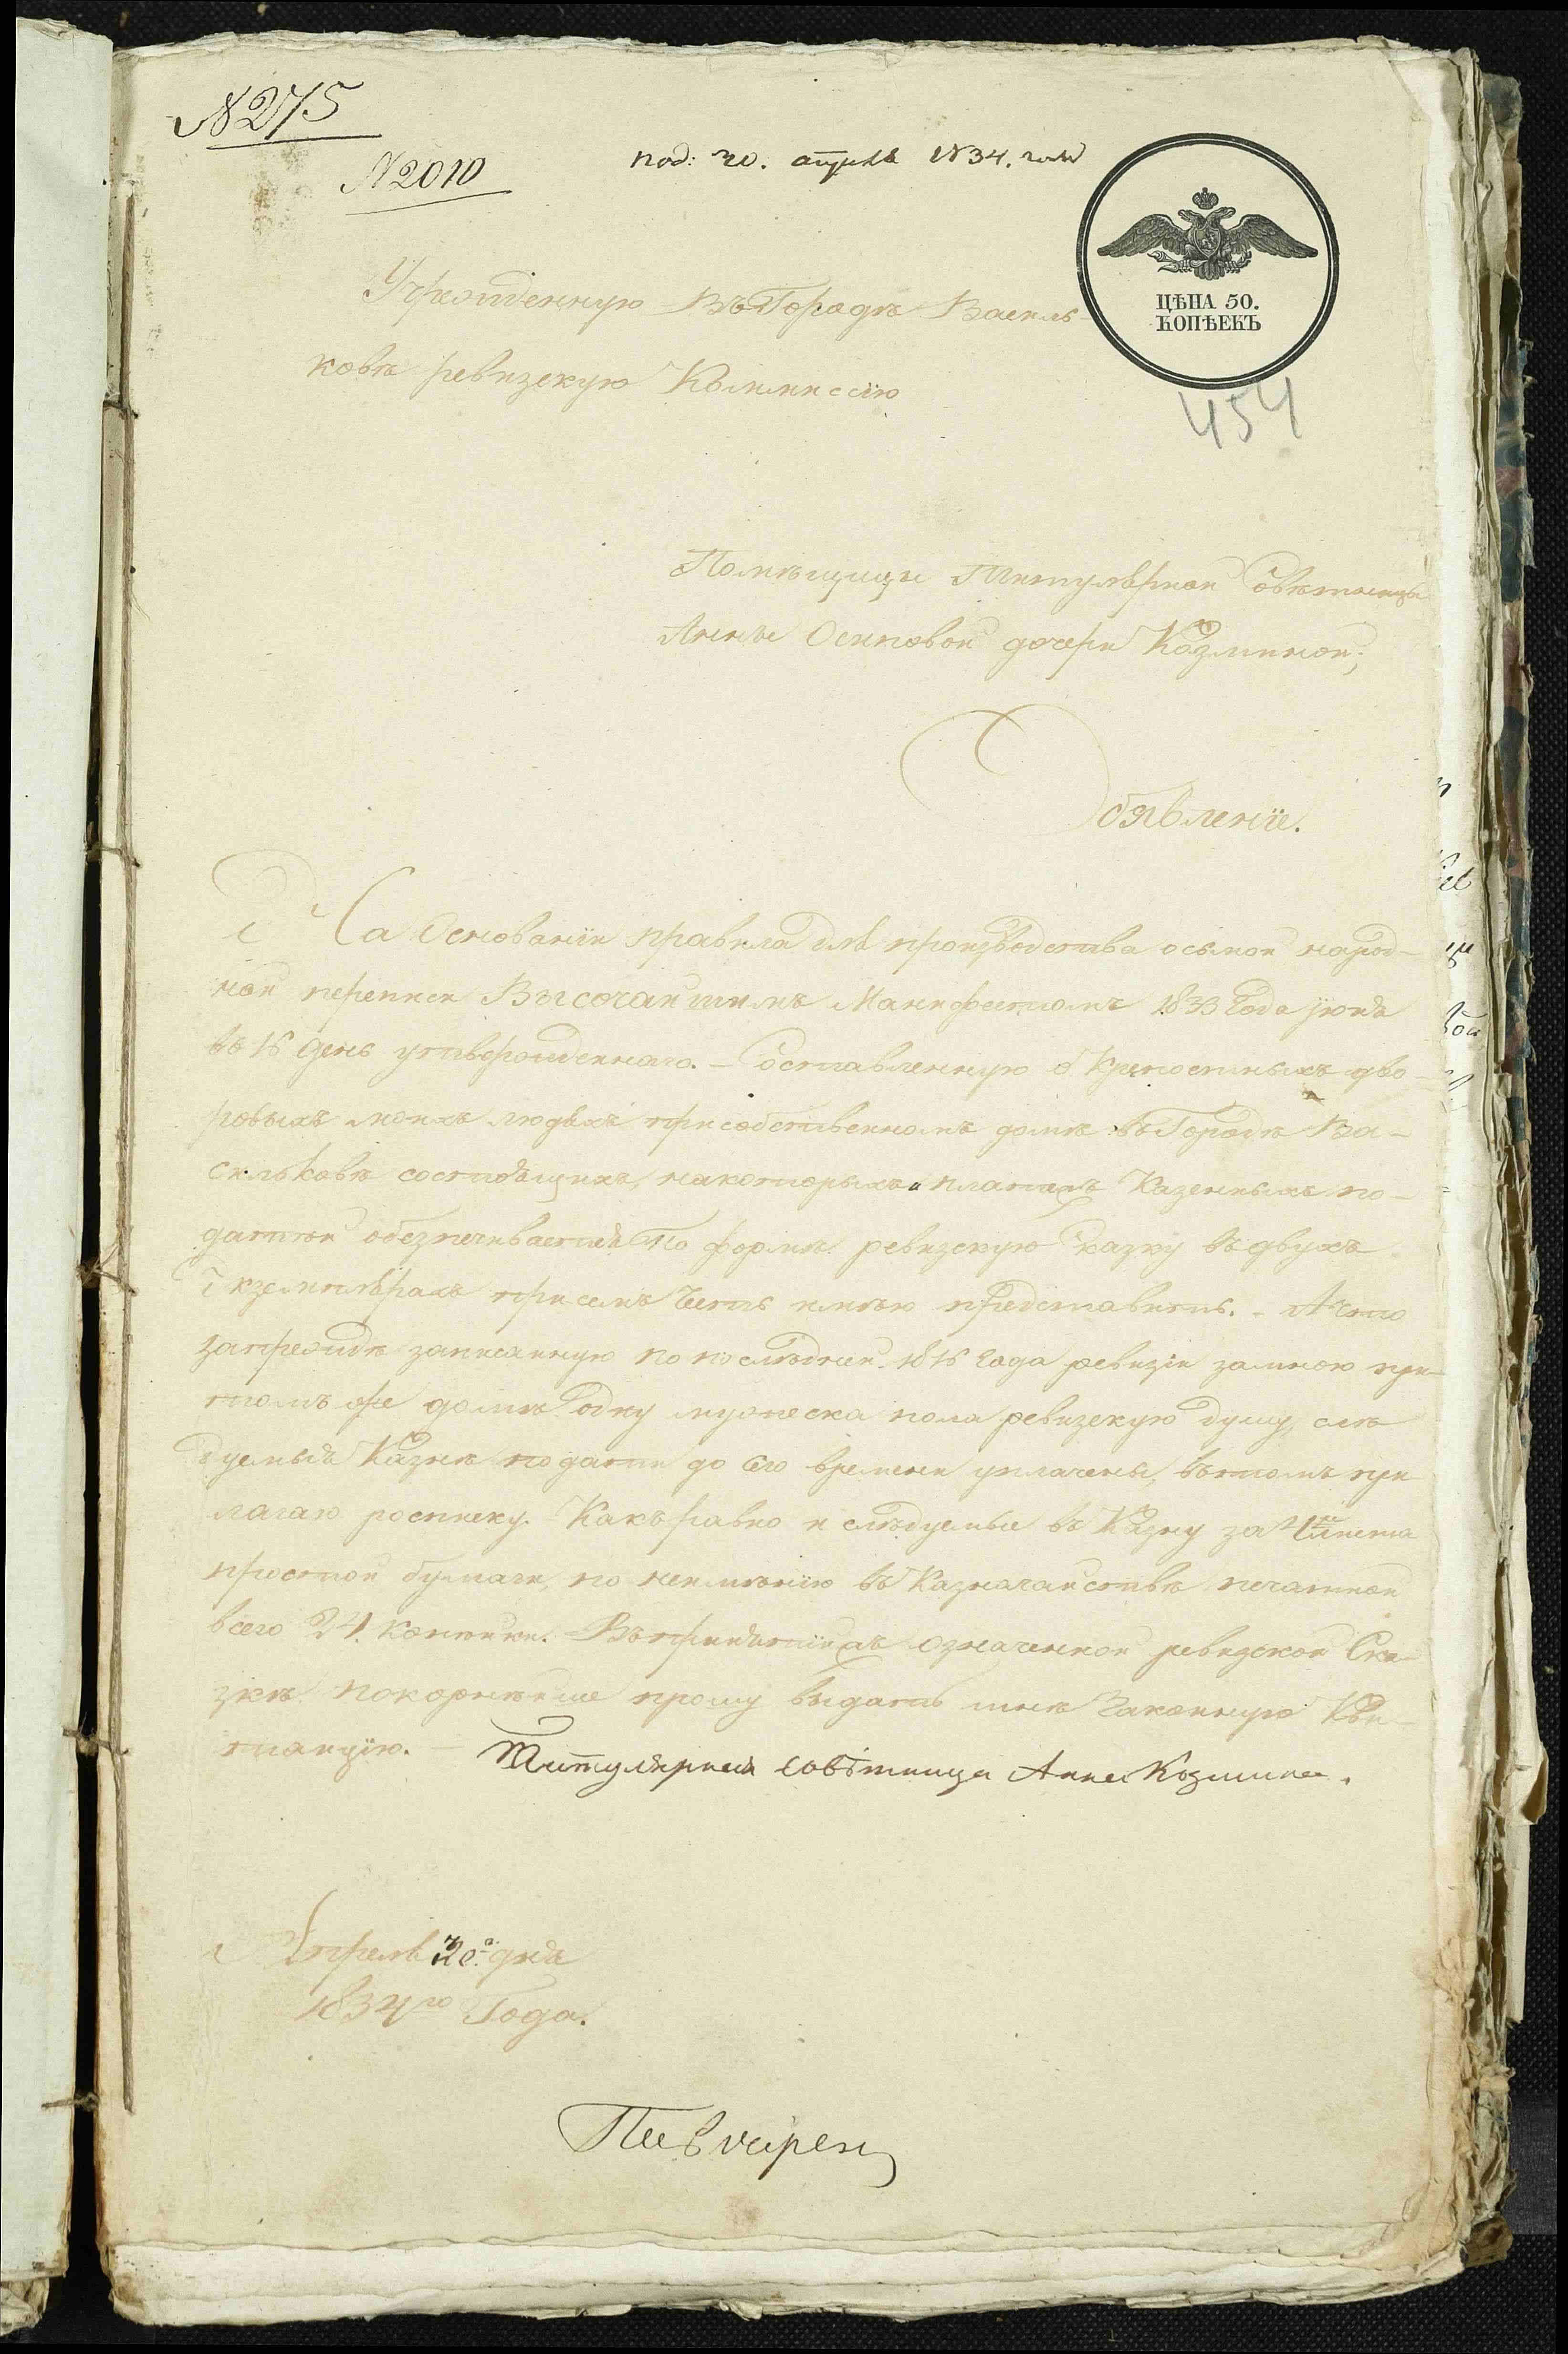 № 275
№ 2010
под: 20. апреля 1834. года
ЦѢНА 50.
КОПѢЕКЪ
454
Учрежденную Въ Городѣ Василь-
ковѣ ревизскую Коммиссію
Помѣщицы Титулярной Совѣтницы
Анны Осиповой дочери Козминой;
Обявленіе.
На Основаніи правила для производства осьмой народ-
ной переписи Высочайшимъ Манифестомъ 1833 Года іюня
въ 16 день утвержденнаго. – Составленную о Крепостныхъ дво-
ровыхъ моихъ людяхъ при собственномъ домѣ въ Городѣ Ва-
сильковѣ состоящихъ, на которыхъ и платежъ Казенныхъ по-
датей обезпечивается По формѣ ревизскую сказку въ двухъ
Екземплярахъ при семъ Честь имѣю представить. – А что
запрежде записанную по последней 1816 Года ревизіи за мною при
томъ же домѣ одну мужеска пола ревизскую душу, слѣ
дуемыя Казнѣ подати до Сего времени уплачены, въ томъ при
лагаю росписку. – Какъ равно и слѣдуемые въ Казну за листа
простой бумаги, по неимѣнію въ Казначействѣ печатной
всего 24. копейки. – Въ принятіи означенной ревизской Ска-
зкѣ покорнѣйше прошу выдать мнѣ Законную Кви-
танцію. – Титулярная Совѣтница Анна Козмина.
Апреля 20го дня
1834го Года.